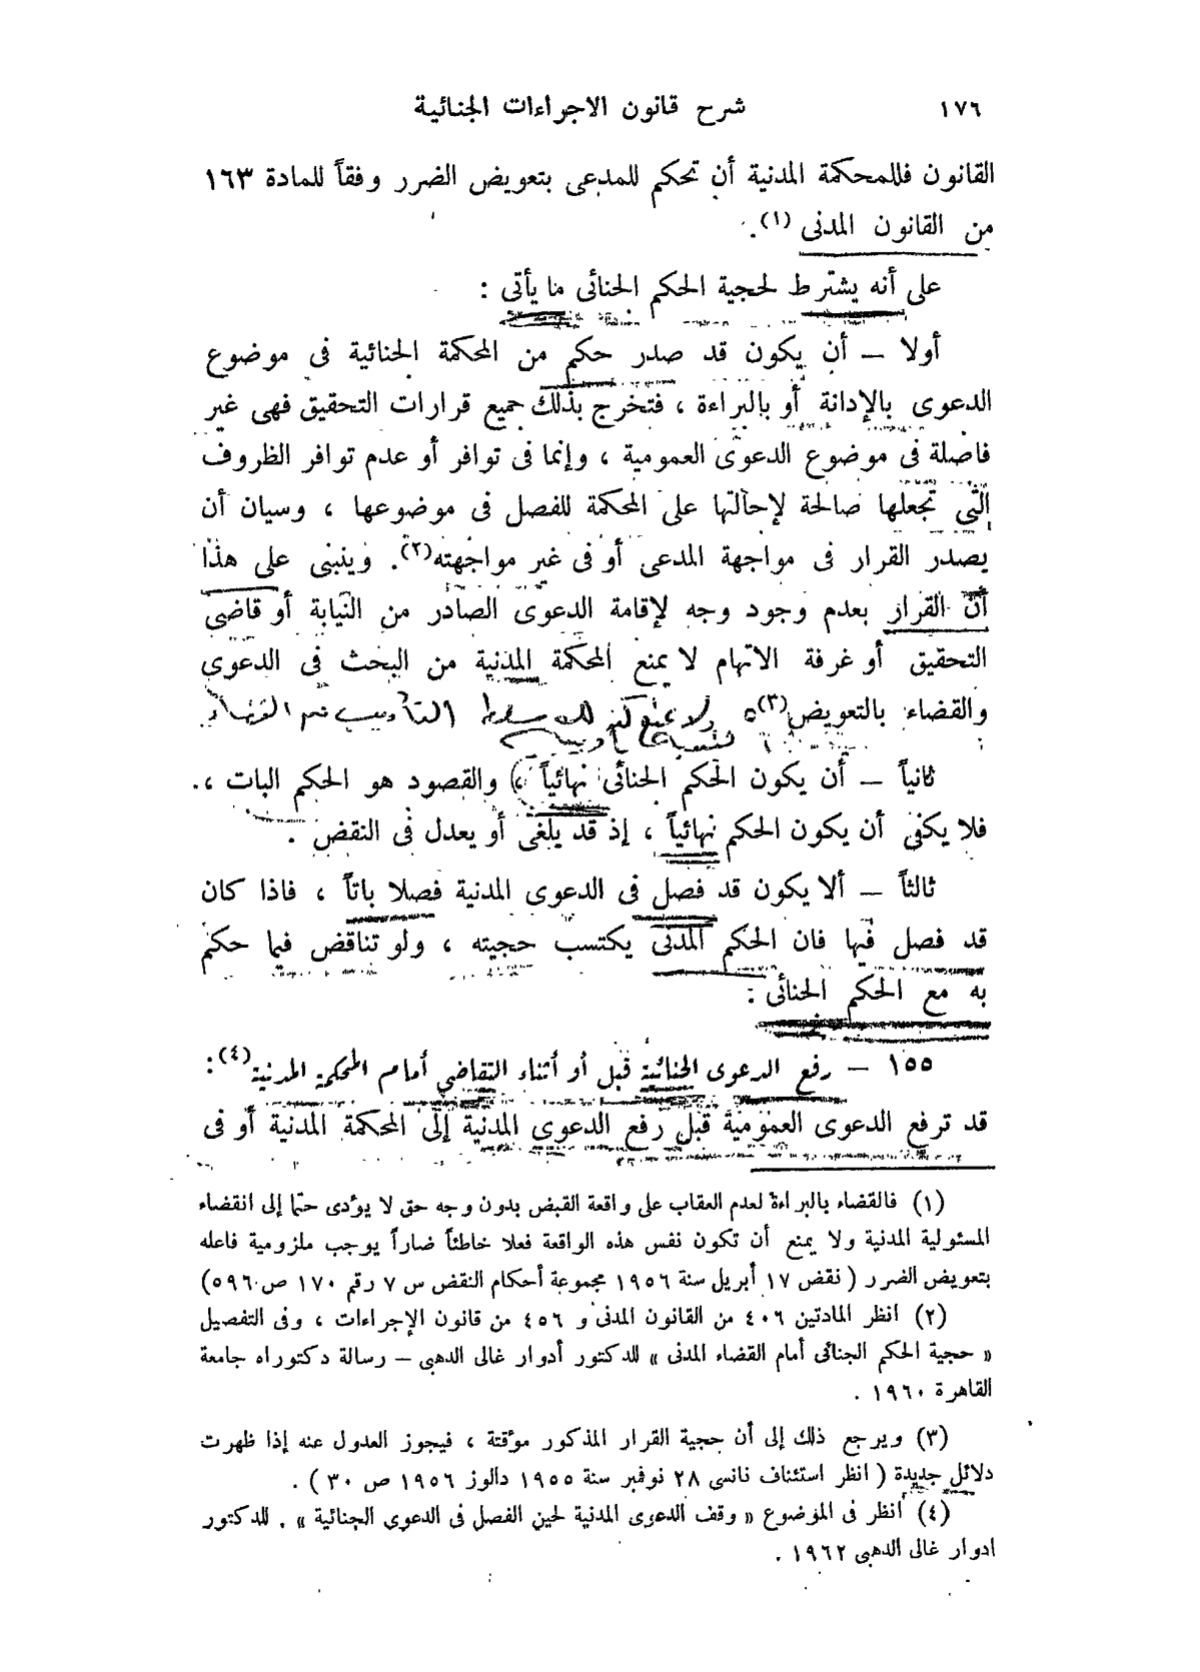 ١٧٦
شرح قانون الاجراءات الجنائية
القانون فللمحكمة المدنية أن تحكم للمدعى بتعويض الضرر وفقاً للمادة ١٦٣
من القانون المدنى (١).
على أنه يشترط لحجية الحكم الجنائى ما يأتى :
أولا — أن يكون قد صدر حكم من المحكمة الجنائية فى موضوع
الدعوى بالإدانة أو بالبراءة ، فتخرج بذلك جميع قرارات التحقيق فهى غير
فاضلة فى موضوع الدعوى العمومية ، وإنما فى توافر أو عدم توافر الظروف
التى تجعلها صالحة لإحالتها على المحكمة للفصل فى موضوعها ، وسيان أن
يصدر القرار فى مواجهة المدعى أو فى غير مواجهته(٢). وينبنى على هذا
أن القرار بعدم وجود وجه لإقامة الدعوى الصادر من النيابة أو قاضى
التحقيق أو غرفة الاتهام لا يمنع المحكمة المدنية من البحث فى الدعوى
والقضاء بالتعويض(٣) ولا يمنع كذلك سلطة التأديب
ثانياً — أن يكون الحكم الجنائى نهائياً ، والقصود هو الحكم البات ،
فلا يكفى أن يكون الحكم نهائياً ، إذ قد يلغى أو يعدل فى النقض .
ثالثاً — ألا يكون قد فصل فى الدعوى المدنية فصلا باتاً ، فاذا كان
قد فصل فيها فان الحكم المدنى يكتسب حجيته ، ولو تناقض فيما حكم
به مع الحكم الجنائى :
١٥٥ — رفع الدعوى الجنائية قبل أو أثناء التقاضي أمام المحكمة المدنية(٤):
قد ترفع الدعوى العمومية قبل رفع الدعوى المدنية إلى المحكمة المدنية أو فى
(١) فالقضاء بالبراءة لعدم العقاب على واقعة القبض بدون وجه حق لا يؤدى حتما إلى انقضاء
المسئولية المدنية ولا يمنع أن تكون نفس هذه الواقعة فعلا خاطئاً ضاراً يوجب ملزومية فاعله
بتعويض الضرر ( نقض ١٧ أبريل سنة ١٩٥٦ مجموعة أحكام النقض س ٧ رقم ١٧٠ ص ٥٩٦)
(٢) انظر المادتين ٤٠٦ من القانون المدنى و ٤٥٦ من قانون الإجراءات ، وفى التفصيل
« حجية الحكم الجنائى أمام القضاء المدنى » للدكتور أدوار غالى الدهبى — رسالة دكتوراه جامعة
القاهرة ١٩٦٠ .
(٣) ويرجع ذلك إلى أن حجية القرار المذكور مؤقتة ، فيجوز العدول عنه إذا ظهرت
دلائل جديدة ( انظر استئناف نانسى ٢٨ نوفبر سنة ١٩٥٥ دالوز ١٩٥٦ ص ٣٠ ) .
(٤) انظر فى الموضوع « وقف الدعوى المدنية لحين الفصل فى الدعوى الجنائية » . للدكتور
ادوار غالى الدهبى ١٩٦٢ .